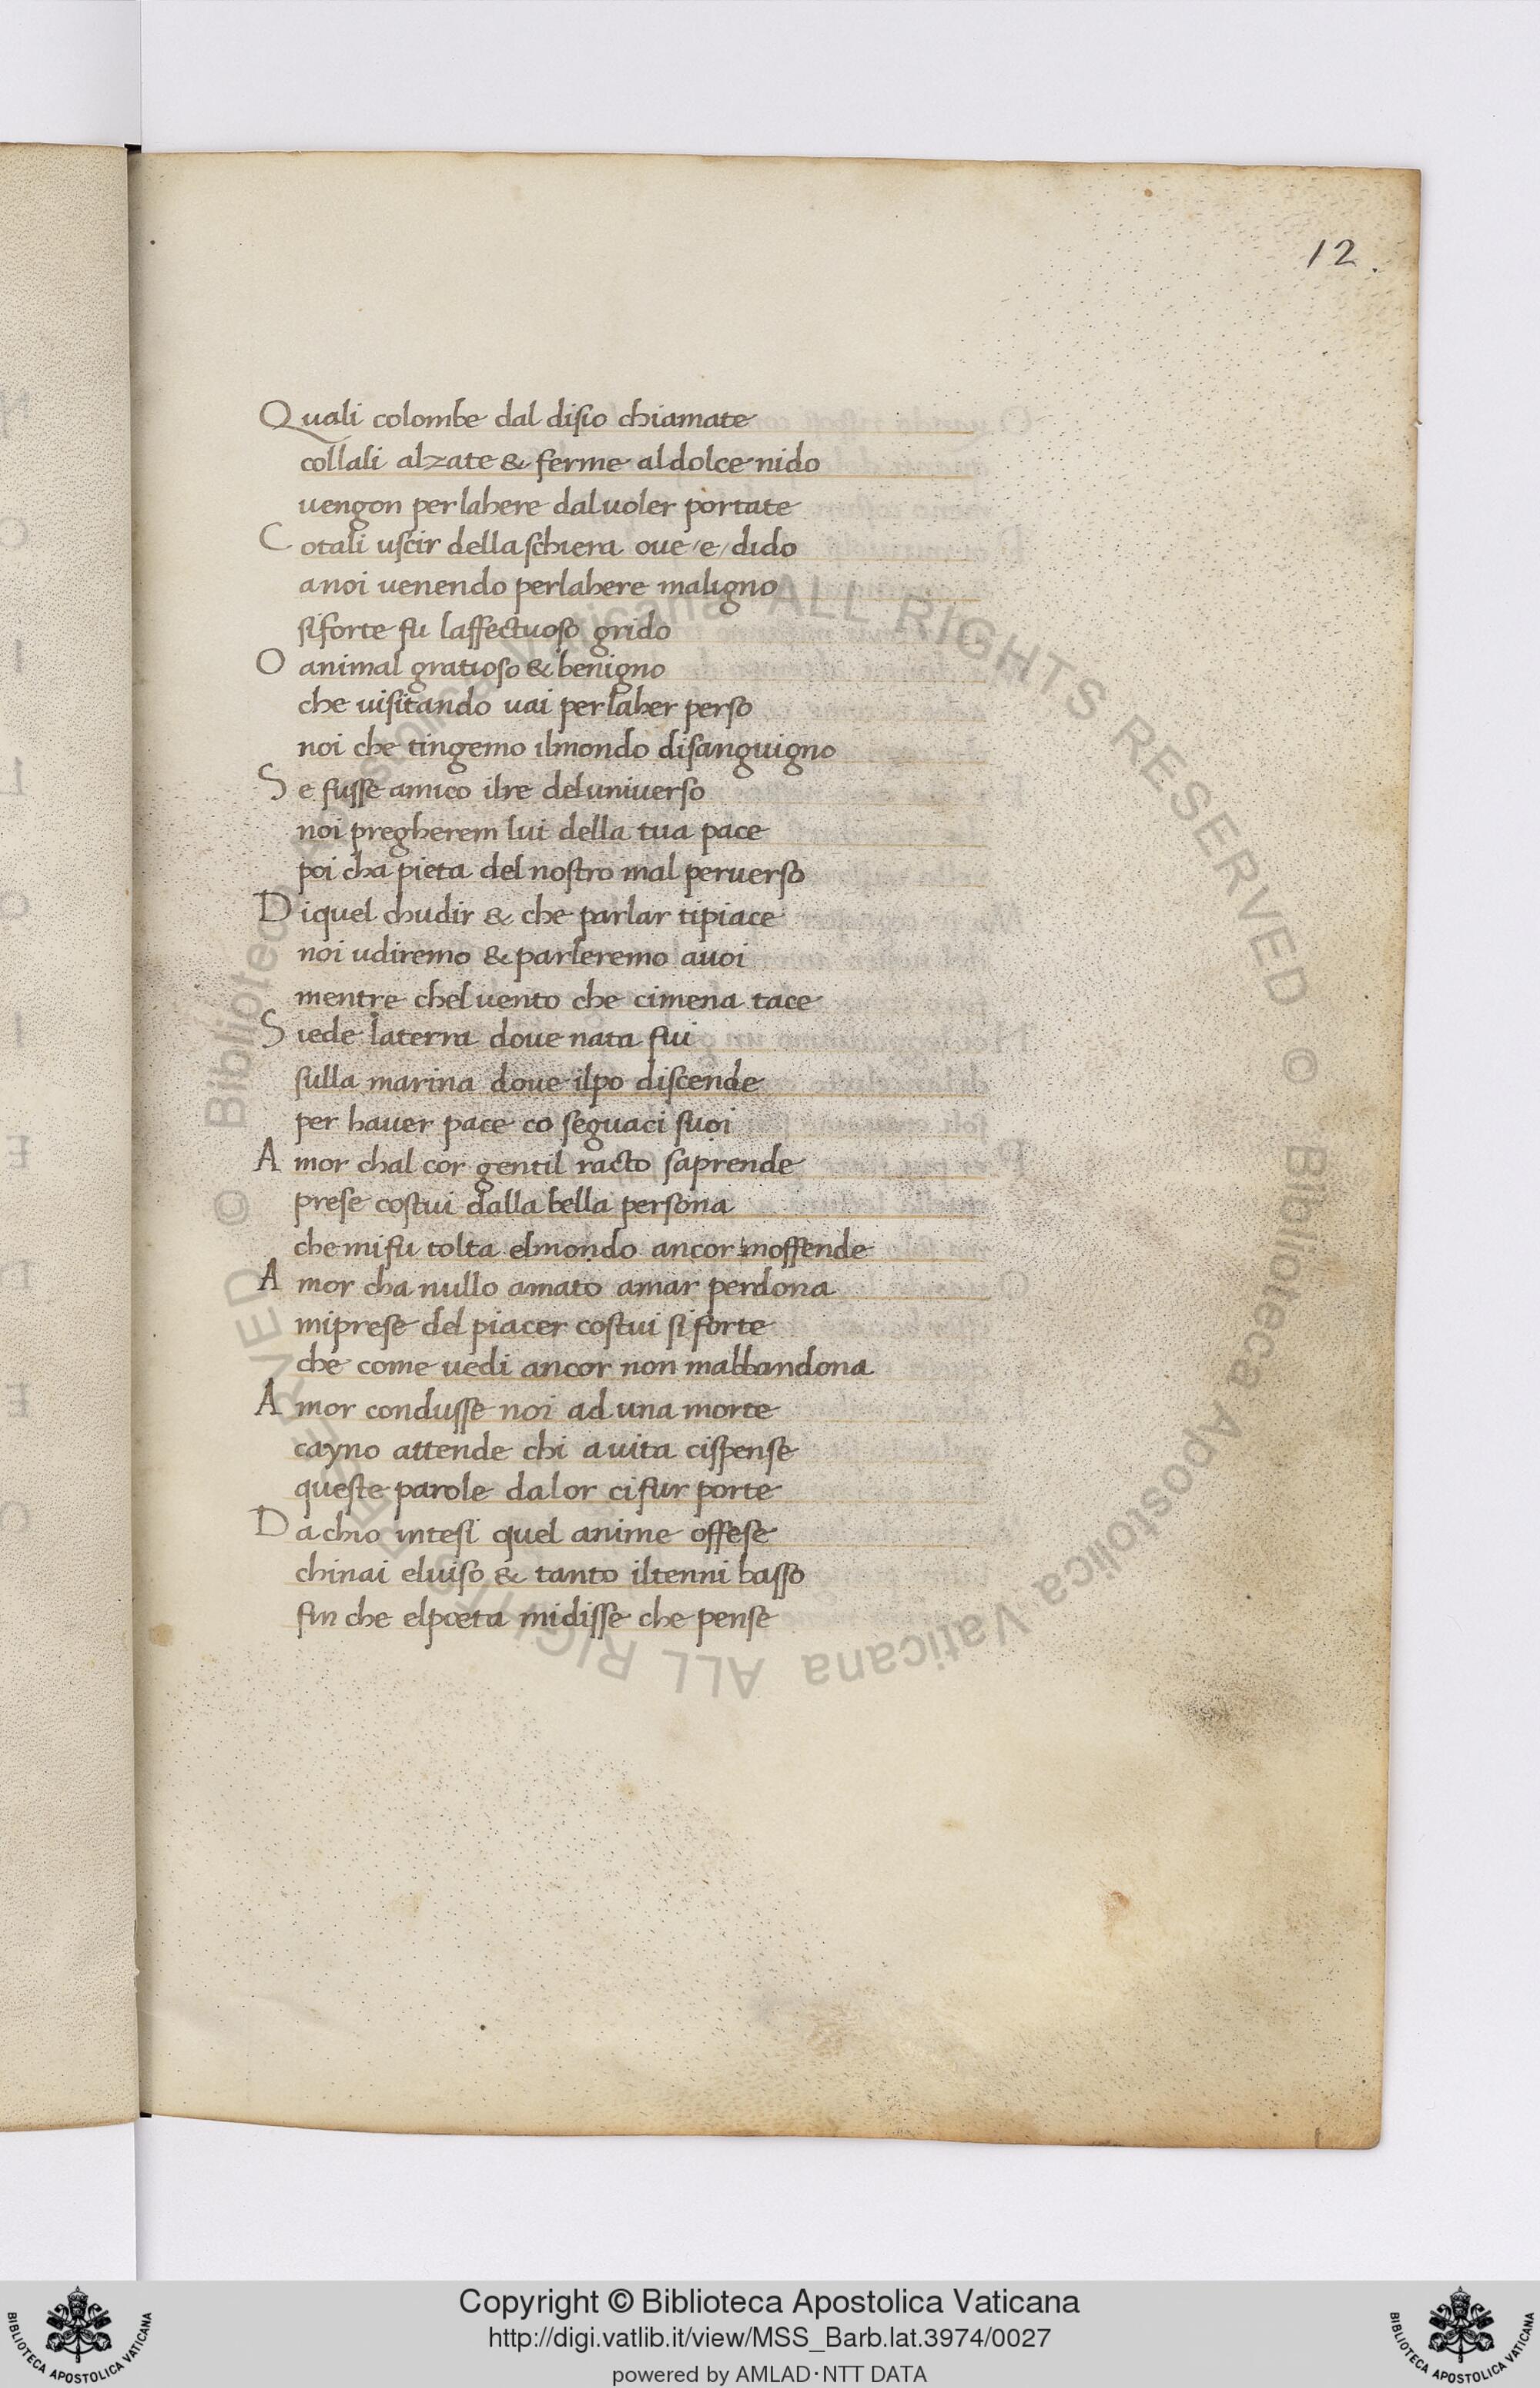 12.
Quali colombe dal disio chiamate
collali alzate & ferme aldolce nido
uengon perlahere daluoler portate
Cotali uscir dellaschiera oue /e/ dido
anoi uenendo perlahere maligno
siforte fu laffectuoso grido
O animal gratioso & benigno
che uisitando uai perlaher perso
noi che tingemo ilmondo disanguigno
Se fusse amico ilre deluniuerso
noi pregherem lui della tua pace
poi cha pieta del nostro mal peruerso
Diquel chudir & che parlar tipiace
noi udiremo & parleremo auoi
mentre cheluento che cimena tace
Siede laterra doue nata fui
sulla marina doue ilpo discende
per hauer pace co seguaci suoi
Amor chal cor gentil racto saprende
prese costui dalla bella persona
chemifu tolta elmondo ancor moffende
Amor cha nullo amato amar perdona
miprese del piacer costui si forte
che come uedi ancor non mabbandona
Amor condusse noi ad una morte
cayno attende chi auita cispense
queste parole dalor cifur porte
Da chio intesi quel anime offese
chinai eluiso & tanto iltenni basso
fin che elpoeta midisse che pense
© Biblioteca Apostolica Vaticana ALL RIGHTS RESERVED © Biblioteca Apostolica Vaticana ALL RIGHTS RESERVED
Copyright © Biblioteca Apostolica Vaticana
http://digi.vatlib.it/view/MSS_Barb.lat.3974/0027
powered by AMLAD·NTT DATA
BIBLIOTECA APOSTOLICA VATICANA
BIBLIOTECA APOSTOLICA VATICANA